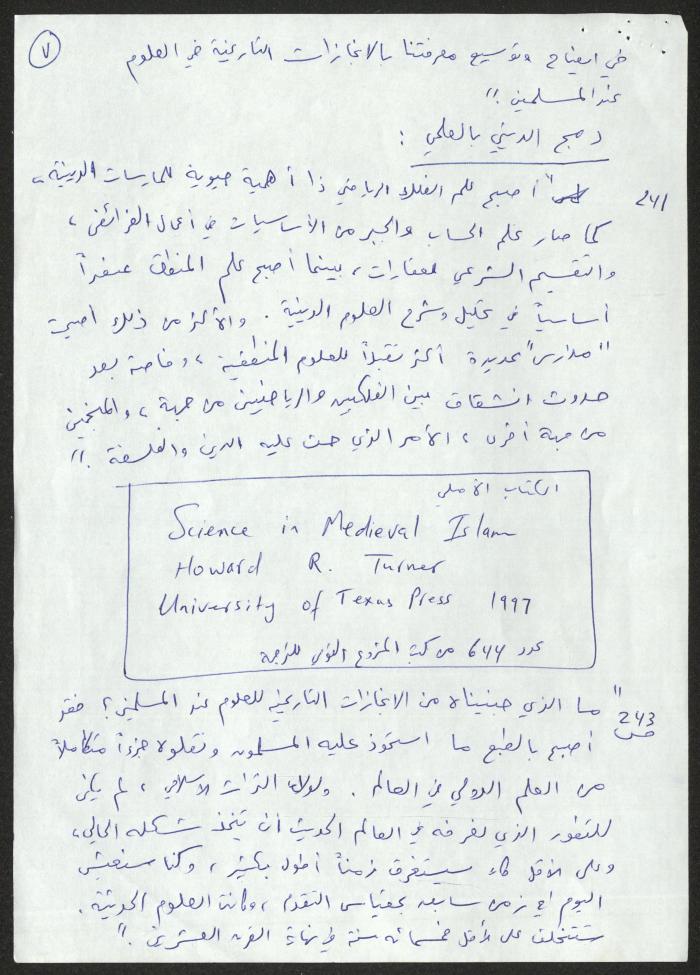 ٧
في ايضاح وتوسيع معرفتنا بالانجازات التاريخية في العلوم
عند المسلمين "
دمج الديني بالعلمي :
241
" أصبح علم الفلك الرياضي ذا أهمية حيوية للممارسات الدينية ،
كما صار علم الحساب والجبر من الأساسيات في أعمال الفرائض ،
والتقسيم الشرعي للعقارات ، بينما أصبح علم المنطق عنصراً
أساسياً في تحليل وشرح العلوم الدينية . والأكثر من ذلك أصبحت
"مدارس" عديدة أكثر تقبلاً للعلوم المنطقية ، وخاصة بعد
حدوث انشقاق بين الفلكيين والرياضيين من جهة ، والمنجمين
من جهة أخرى ، الأمر الذي حث عليه الدين والفلسفة . "
الكتاب الأصلي
Science in Medieval Islam
Howard R. Turner
University of Texas Press 1997
عدد ٦٤٤ من كتب المشروع القومي للترجمة
243
ص
" ما الذي جنيناه من الانجازات التاريخية للعلوم عند المسلمين ؟ فقد
أصبح بالطبع ما استحوذ عليه المسلمون ونقلوه جزءاً متكاملاً
من العلم الدولي في العالم . ولولا التراث الاسلامي ، لم يكن
للتطور الذي نعرفه في العالم الحديث أن يتخذ شكله الحالي ،
وعلى الأقل كان سيستغرق زمناً أطول بكثير ، وكنا سنعيش
اليوم في زمن سابق بمقياس التقدم ، وكانت العلوم الحديثة .
ستتخلف على الأقل خمسمائة سنة في نهاية القرن العشرين . "